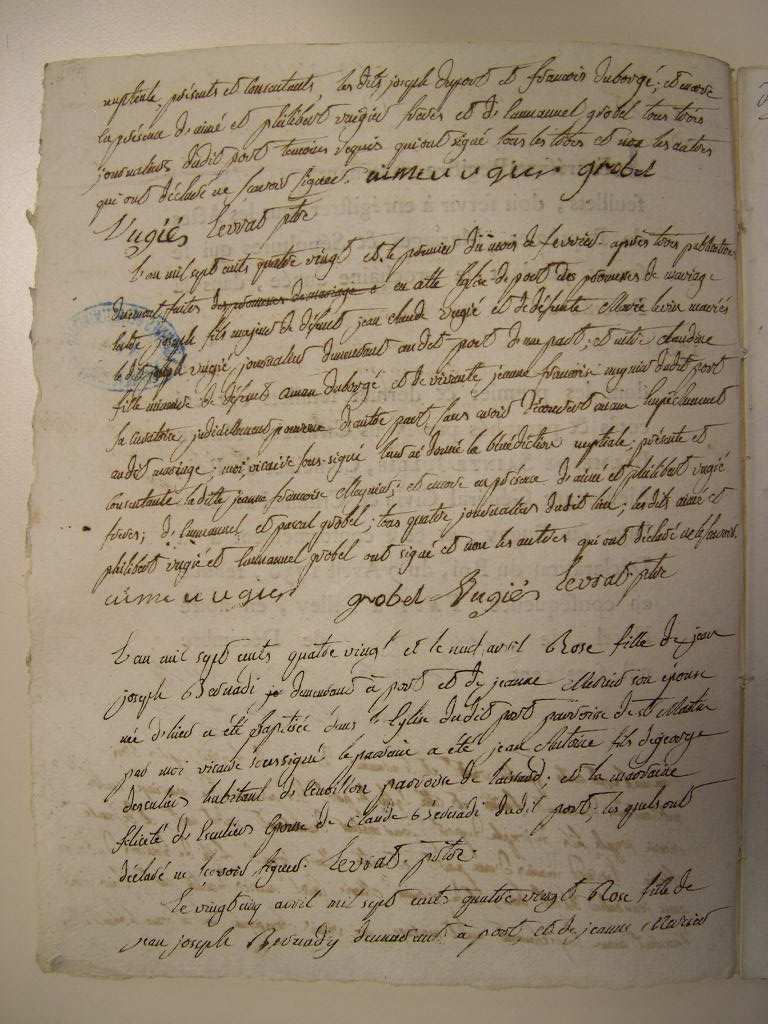 nuptiale, présents et consentants, les dits joseph duport et francois duborgé; et encore
la présence d'aimé et philibert vugié freres et d'emmanuel grobel tous trois
journaliers dudit port temoins requis qui ont signé tous les trois et non les autres
qui ont déclaré ne scavoir signer. aime uugier grobel
Vugiés levrat ptre
L'an mil sept cents quatre vingt et le premier du mois de fevrier après trois publications
duement faites des promesses de mariage en cette Eglise de port des promesses de mariage
entre joseph fils majeur de défunt jean claude vugié et de défunte Marie mariés
le dit joseph vugié, journalier demeurant audit port d'une part; et entre claudine
fille mineure de défunt aman duborgé et de vivante jeanne francoise magnin dudit port
sa curatrice, judiciellement d'autre part, sans avoir découvert aucun Empêchement
audit mariage; moi, vicaire sous-signé leur ai donné la bénédiction nuptiale, présente et
consentante la dite jeanne francoise Magnin; et encore en présence d'aimé et philibert vugié
freres; d'emmanuel et pascal grobel; tous quatre journaliers dudit lieu; les dits aimé et
philibert vugié et Emmanuel grobel ont signé et non les autres qui ont déclaré ne le scavoir.
aime uugier grobel Vugiés levrat ptre
L'an mil sept cents quatre vingt et le neuf avril Rose fille de jean
joseph Bernadi demeurant à port et de jeanne Mercier son épouse
née d'hier a été Baptisée dans l'Eglise dudit port parroisse de st Martin
par moi vicaire soussigné le parrain a été jean Antoine fils de george
desculies habitant de parroisse de ; et la marraine
felicité d'Esculies Epouse de Claude Bernadi dudit port. les quels ont
déclaré ne scavoir signer. levrat. prêtre
Le vingt avril mil sept cents quatre vingt Rose fille de
jean joseph Bernady demeurant à port, et de jeanne Mercier